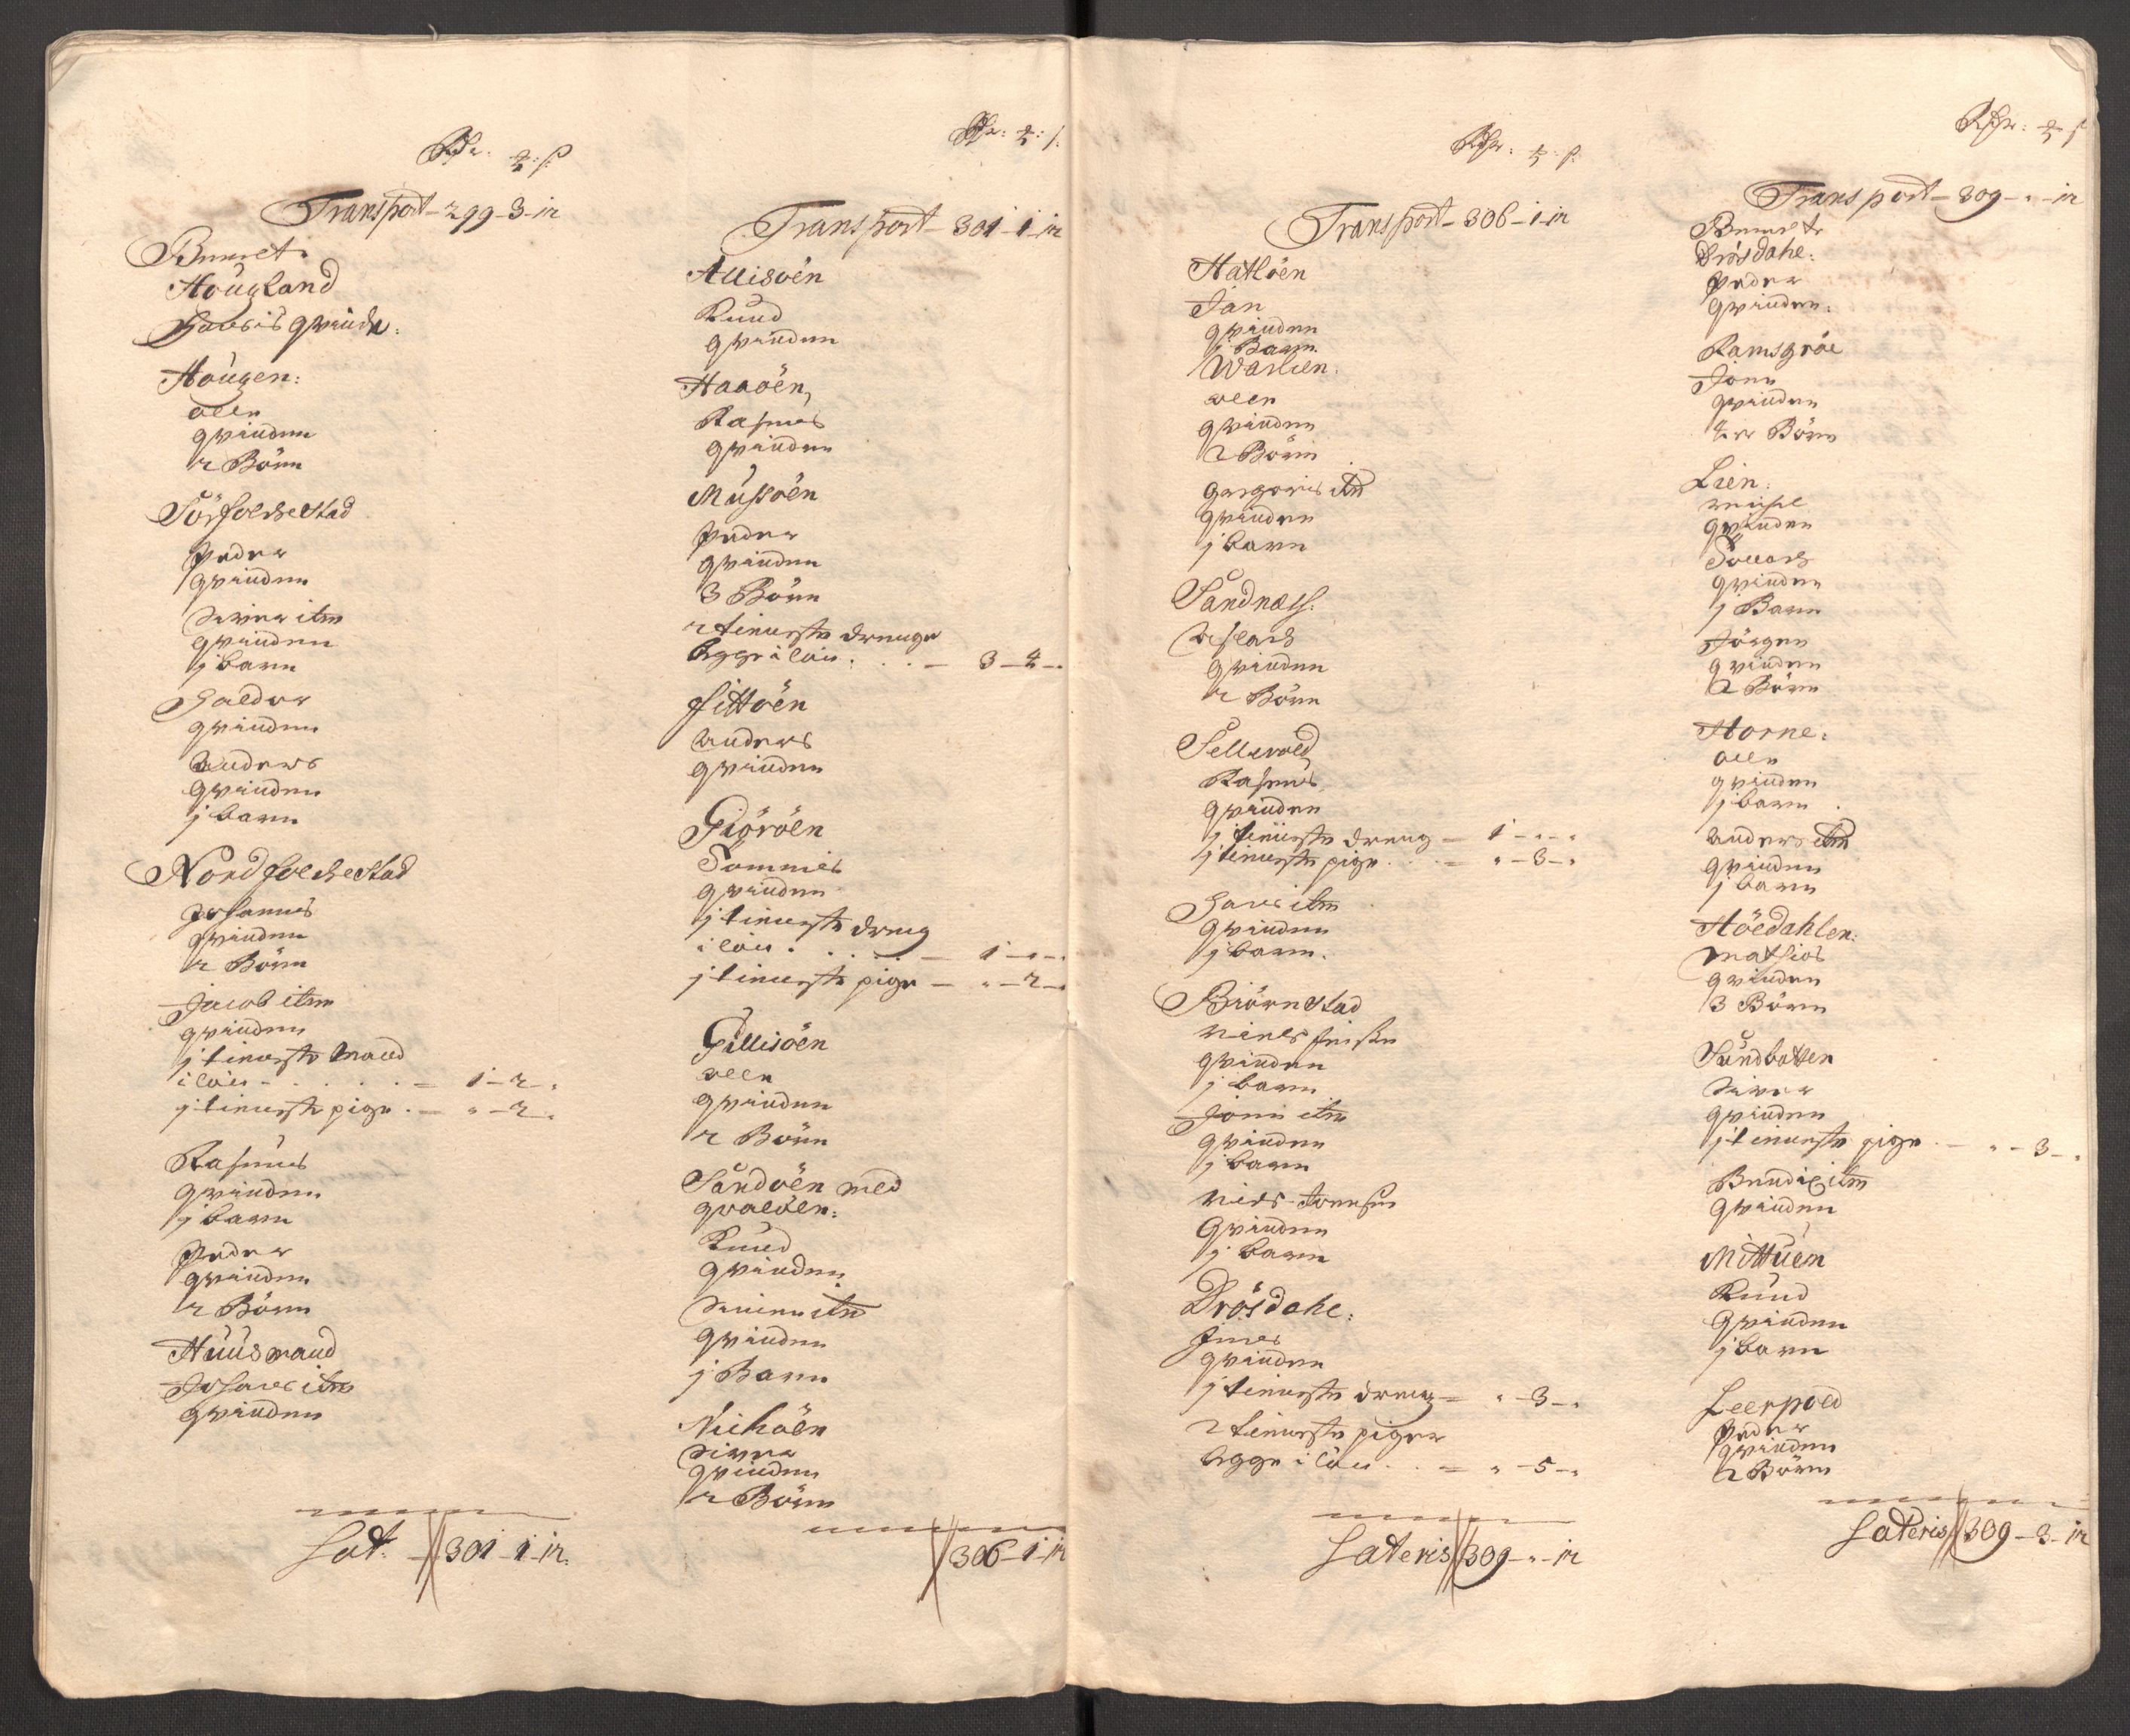 Rdr: ℔: ß:
Transport – 299 – 3 – 12
Bennet
Hougland
Hansis qvinde:
Hougen:
Olle
qvinden
2 Börn
Sörfolchestad
Peder
qvinden
Siver itm
qvinden
j barn
Haldor
qvinden
Anders
qvinden
j barn
Nordfolchestad
Johannes
qvinden
2 Börn
Jacob itm
qvinden
j tieniste Mand
i lön – 1 – 2 – "
j tieniste pige . – " – 2 – "
Rasmus
qvinden
j barn
Peder
qvinden
2 Börn
Huusmand
Johanes itm
qvinden
Lat: – 301 – 1 – 12.
Rdr: ℔: ß:
Transport – 301 – 1 – 12
Allisöen
Knud
qvinden
Haaöen
Rasmus
qvinden
Mussöen
Peder
qvinden
3 Börn
2 tieniste drenge
begge i lön . . . – 3 – 4 – .
Hittöen
Anders
qvinden
Giöröen
Tommes
qvinden
j tieniste dreng
i lön . . . . – 1 – " – .
j tieniste pige – " – 2 – .
Gillisöen
Olle
qvinden
2 Börn
Sandöen med
qvalöen:
Knud
qvinden
itm
qvinden
j Barn
Nichöen
Siver
qvinden
2 Börn
306 – 1 – 12
Rdr: ℔: ß:
Transport – 306 – 1 – 12
Hatlöen
Jan
qvinden
j Barn
Warlien.
Olle
qvinden
2 Börn
Gregoris itm
qvinden
j barn
Sandness:
Aslach
qvinden
2 Börn
Sellevold
Rasmus
qvinden
j tieniste dreng – 1 – " – "
j tieniste pige . . . – " – 3 – "
Hans itm
qvinden
j barn.
Biörnestad
Niels
qvinden
j barn
Jonn itm
qvinden
j barn
Niels
Qvinden
j barn
Drösdahe:
Jens
qvinden
j tieniste dreng – " – 3 – "
2 tieniste piger
begge i lön . . – " – 5 – "
Lateris 309 – " – 12
Rdr: ℔: ß
Transport – 309 – " – 12
Bennete
Drösdahe:
Peder
qvinden:
Ramsgröe
Jonn
qvinden
Börn
Lien:
Michel
qvinden
Sövers
qvinden
j Barn
Jörgen
qvinden
2 Börn
Horne:
Olle
qvinden
j barn
Anders itm
qvinden
j barn
Höedahlen:
Mathios
qvinden
3 Börn
Sundbotten
Siver
qvinden
j tieniste pige – " – 3 – "
Bendix itm
qvinden
Mittuen
Knud
Qvinden
j barn
Leerpold
Peder
qvinden
2 Börn
Lateris 309 – 3 – 12